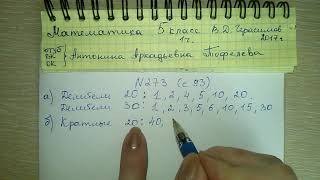 Математика 5 класс В.Д. Герасимов
1ч. 2017г.
ЮТУБ
ВК
ОК
Антонина Аркадьевна Тюфелева
N273 (с 93)
а) Делители 20: 1, 2, 4, 5, 10, 20.
Делители 30: 1, 2, 3, 5, 6, 10, 15, 30
б) Кратные 20: 40,